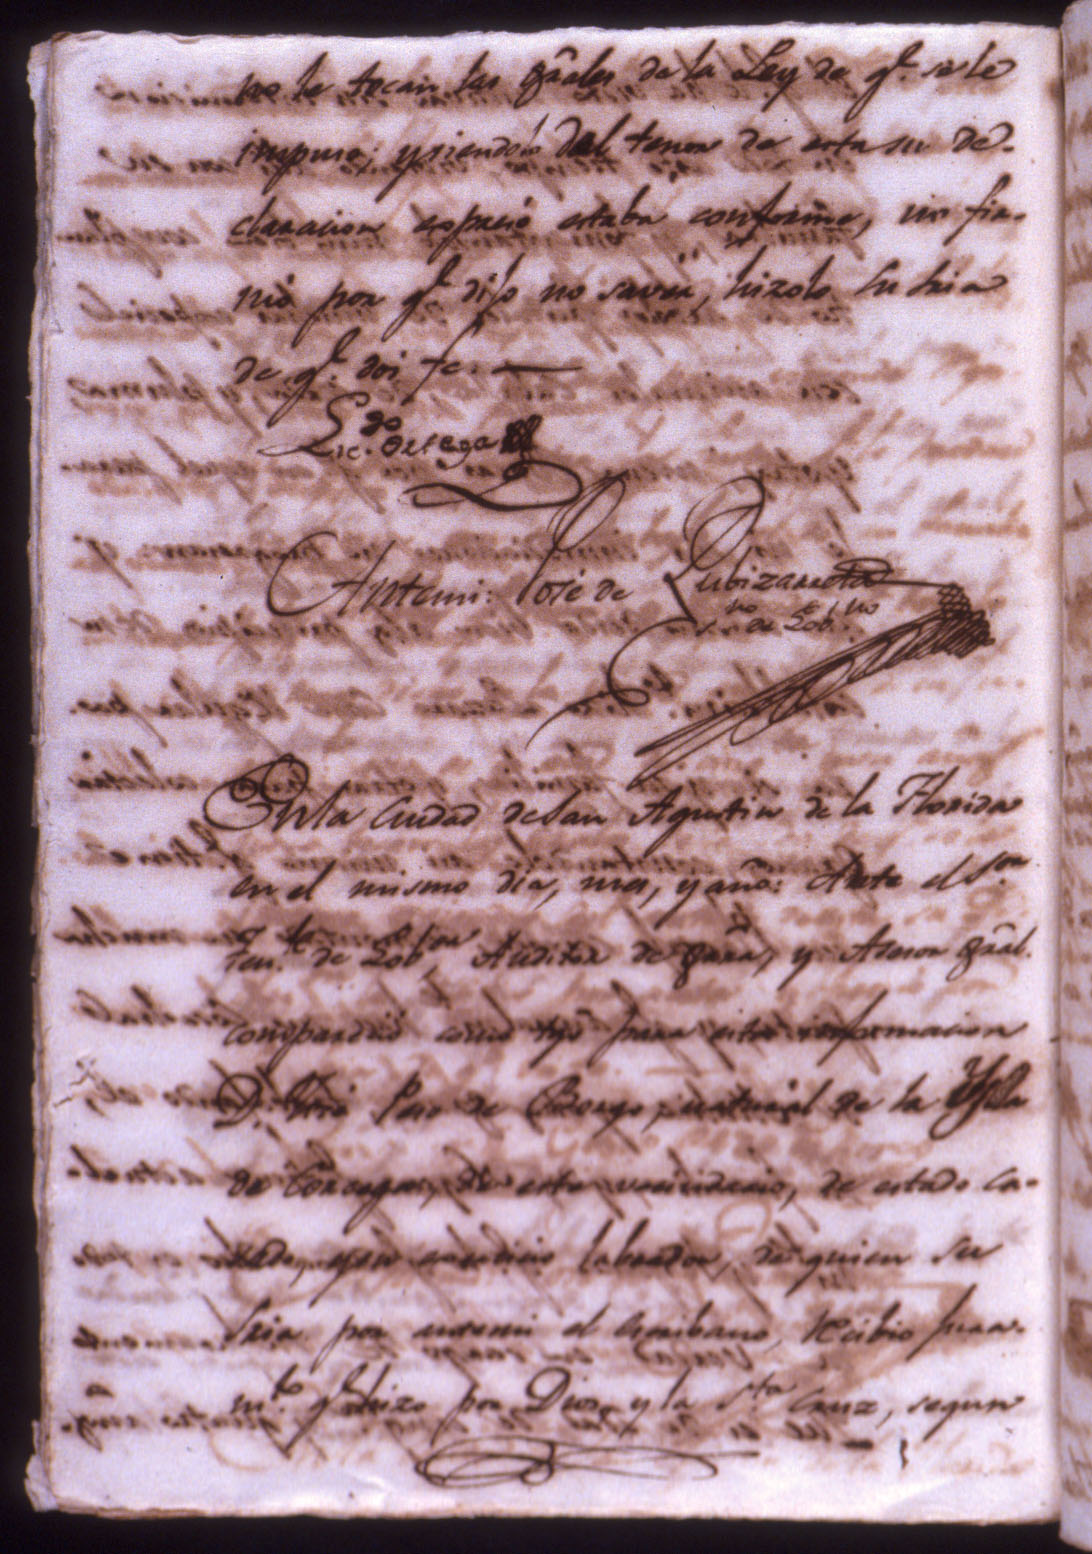 no le tocan las grâles de la Ley de q.e se le
impuso; y siendolo del tenor de esta su de-
claracion expresó estaba conforme, no fir-
mó por q.e dijo no saver, hizolo Su Sria
de q.e doi fe.
Lic.do Ortega
Antemi: José de Zubizarreta
no de Gob.no
En la Ciudad de San Agustin de la Florida
en el mismo dia, mes, y año: Ante el S.or
Ten.te de Gob.or Auditor de grâ, y Asesor grâl.
compareció como tgo para esta informacion
D. José Peso de Burgo, natural de la Ysla
de Corcega, de este vecindario, de estado ca-
sado, y su exercicio labrador, de quien su
Sria. por antemi el Escribano, recibio jura-
m.to q.e hizo por Dios y la S.ta Cruz, segun